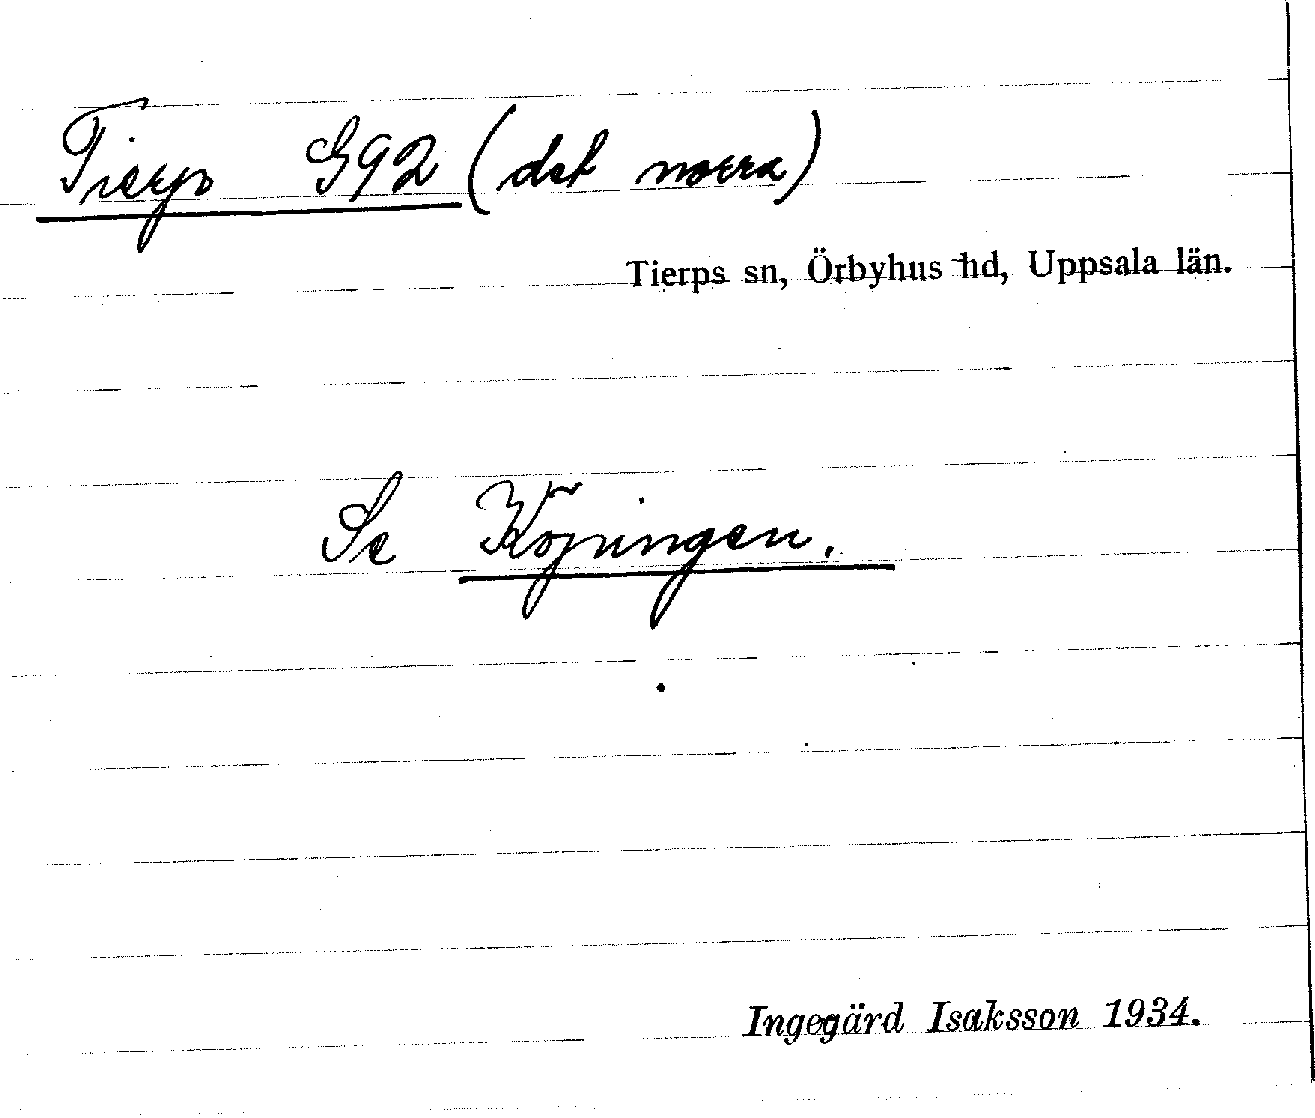 Tierp G92 (det norra)
Tierps sn, Örbyhus hd, Uppsala län.
Se Köpingen.
Ingegärd Isaksson 1934.